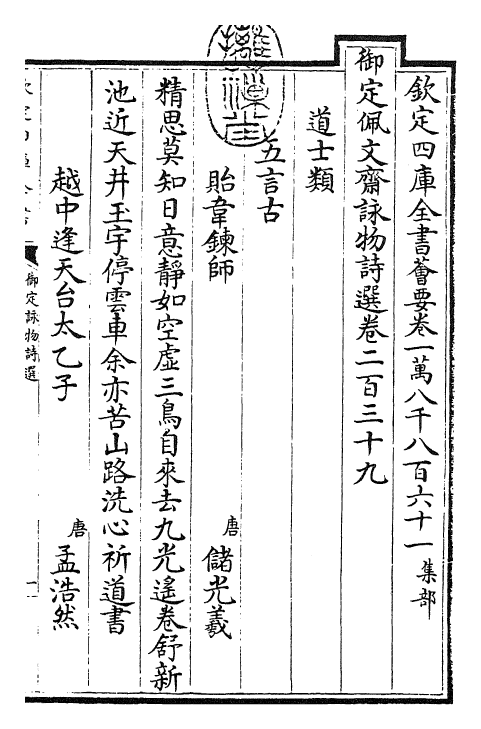 欽定四庫全書薈要卷一萬八千八百六十一 集部
御定佩文齋詠物詩選卷二百三十九
道士類
五言古
貽韋鍊師 唐 儲光羲
精思莫知日意靜如空虛三鳥自來去九光遙卷舒新
池近天井玉宇停雲車余亦苦山路洗心祈道書
越中逢天台太乙子 唐 孟浩然
御定詠物詩選